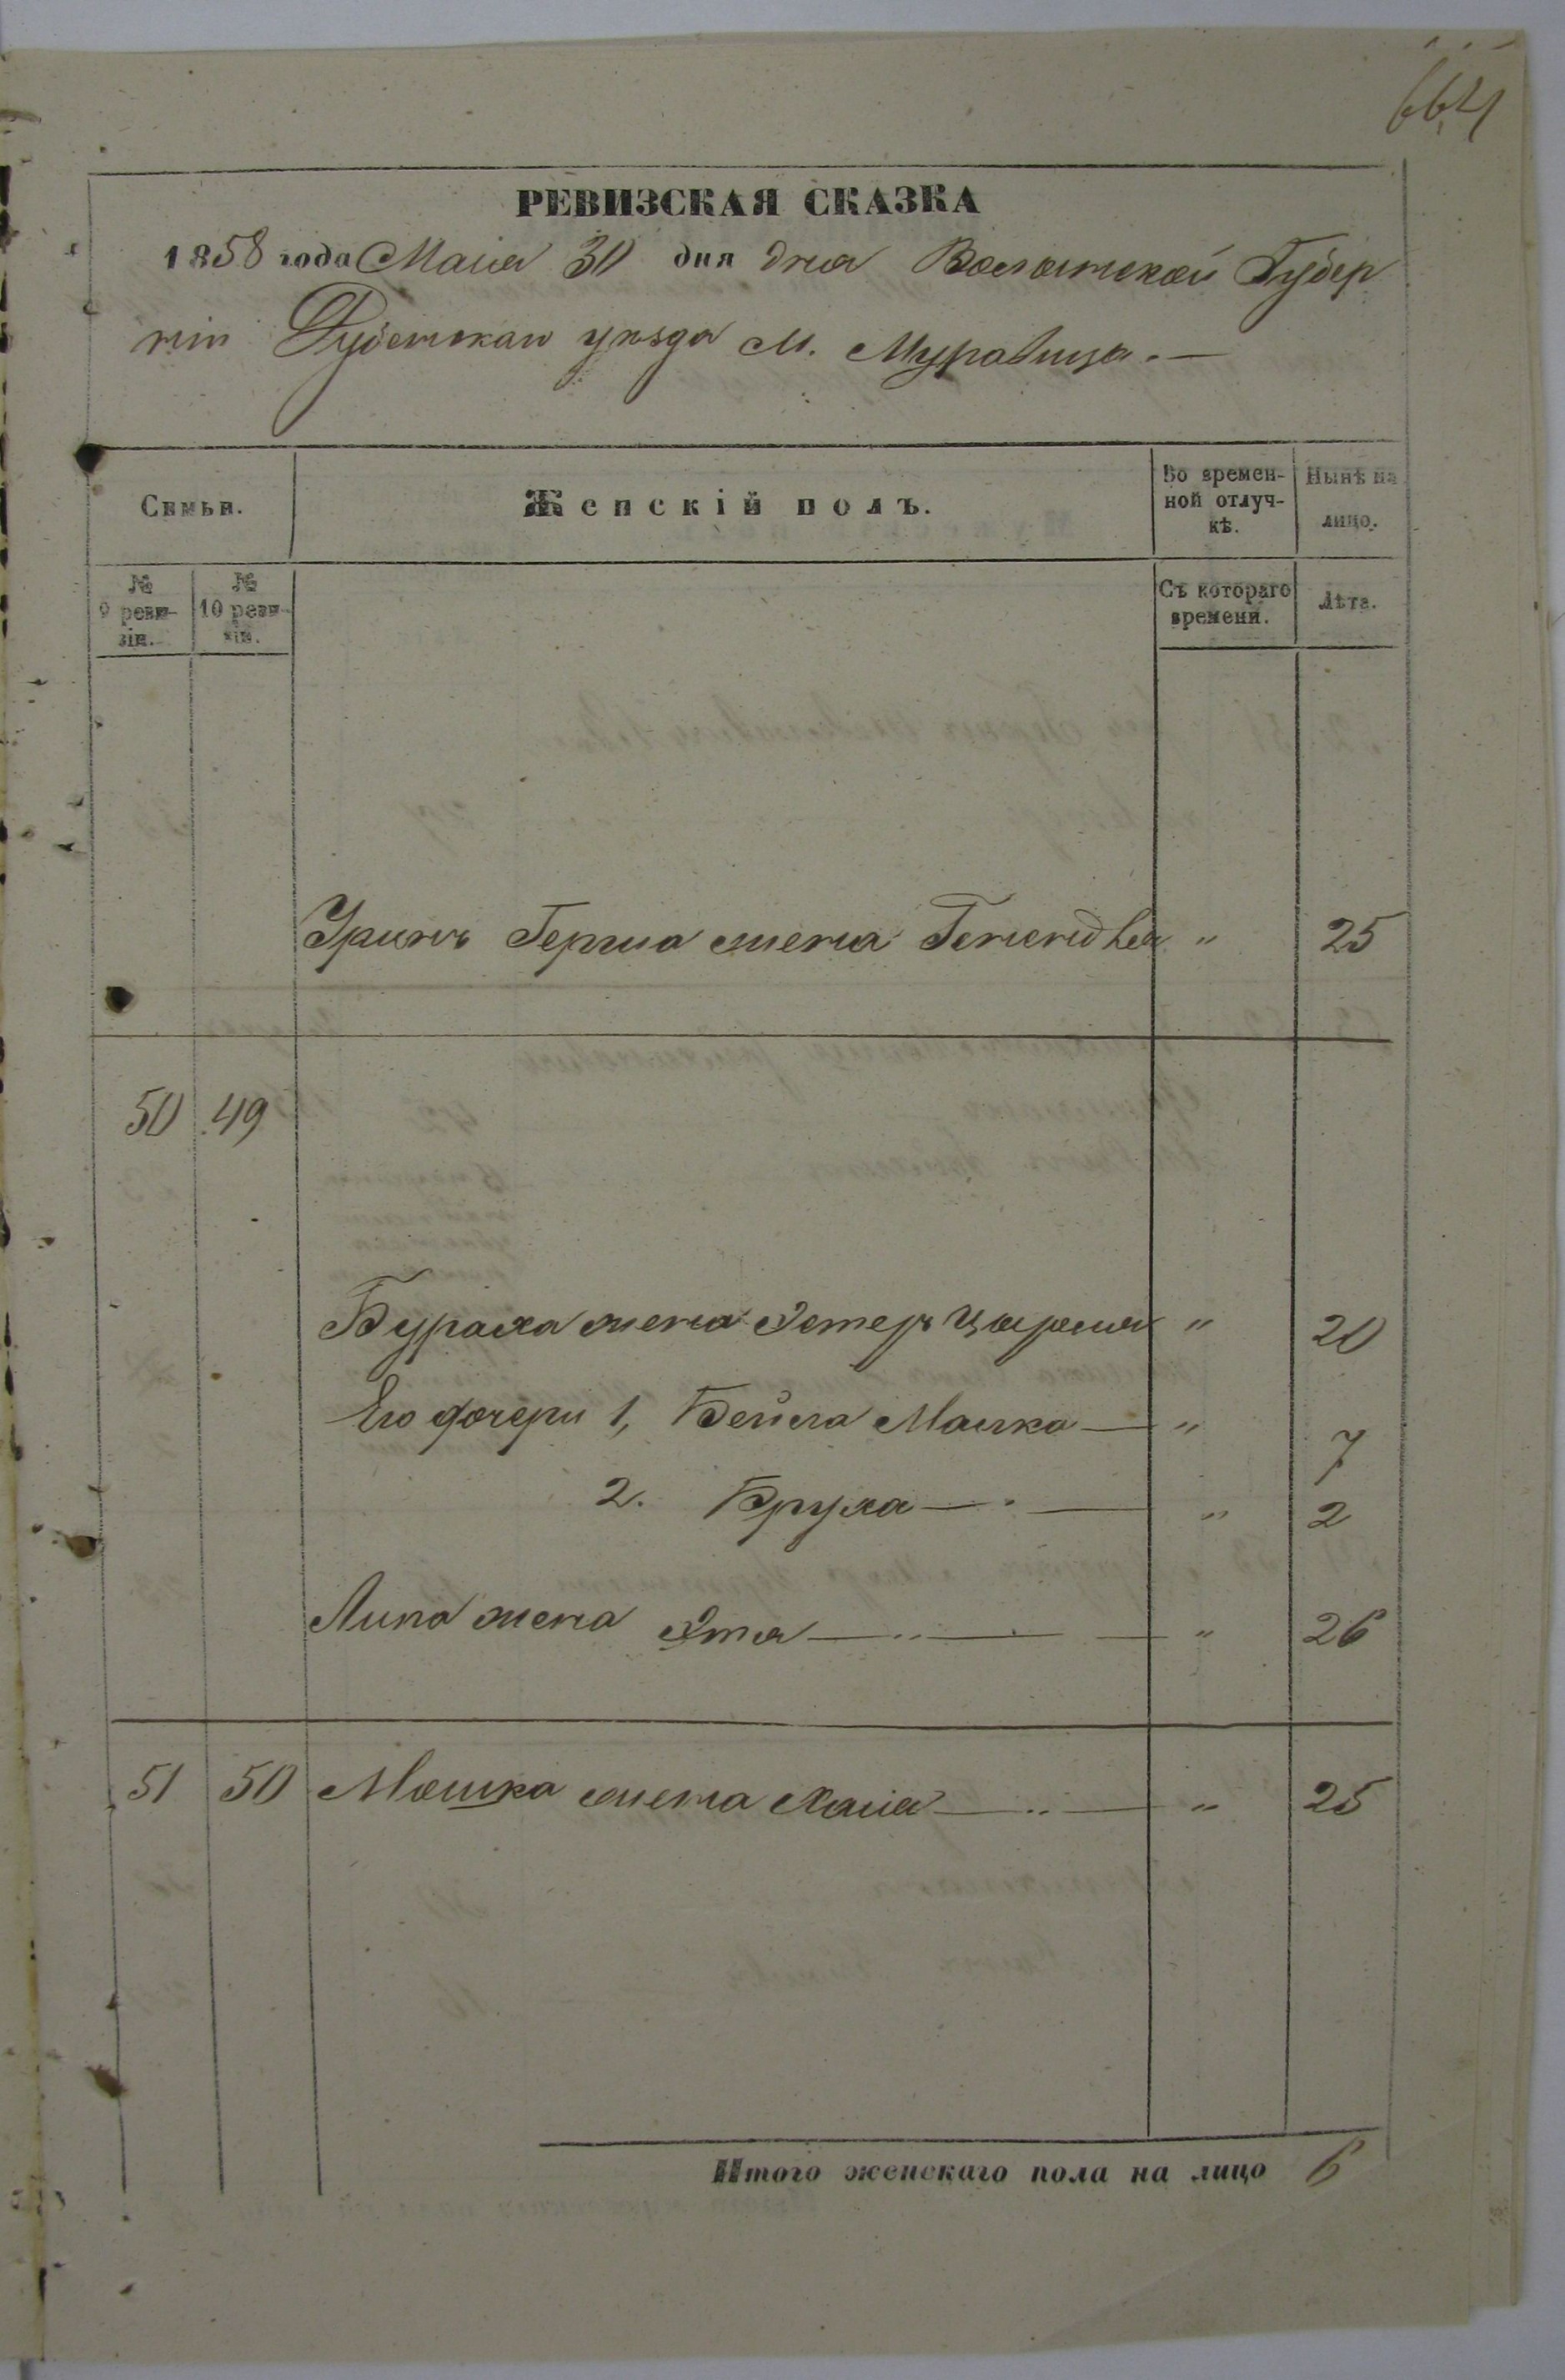 664
РЕВИЗСКАЯ СКАЗКА
1858 года Маія 30 дня дня Волынской Губер
ніи Дубенскаго уѣзда М. Муравица.—
Семьи.
Женскій полъ.
Во времен-
ной отлуч-
кѣ.
Нынѣ на
лицо.
№
9 реви-
зіи.
№
10 реви-
зіи.
Съ котораго
времени.
Лѣта.
Герша жена " 25
50 49
Бураха жена Эстеръ " 20
Его дочери 1, Бейла Малка — " 7
2. Бруха — " 2
Липа жена Эта — " 26
51 50 Мошка жена Хаия — " 25
Итого женскаго пола на лицо 6